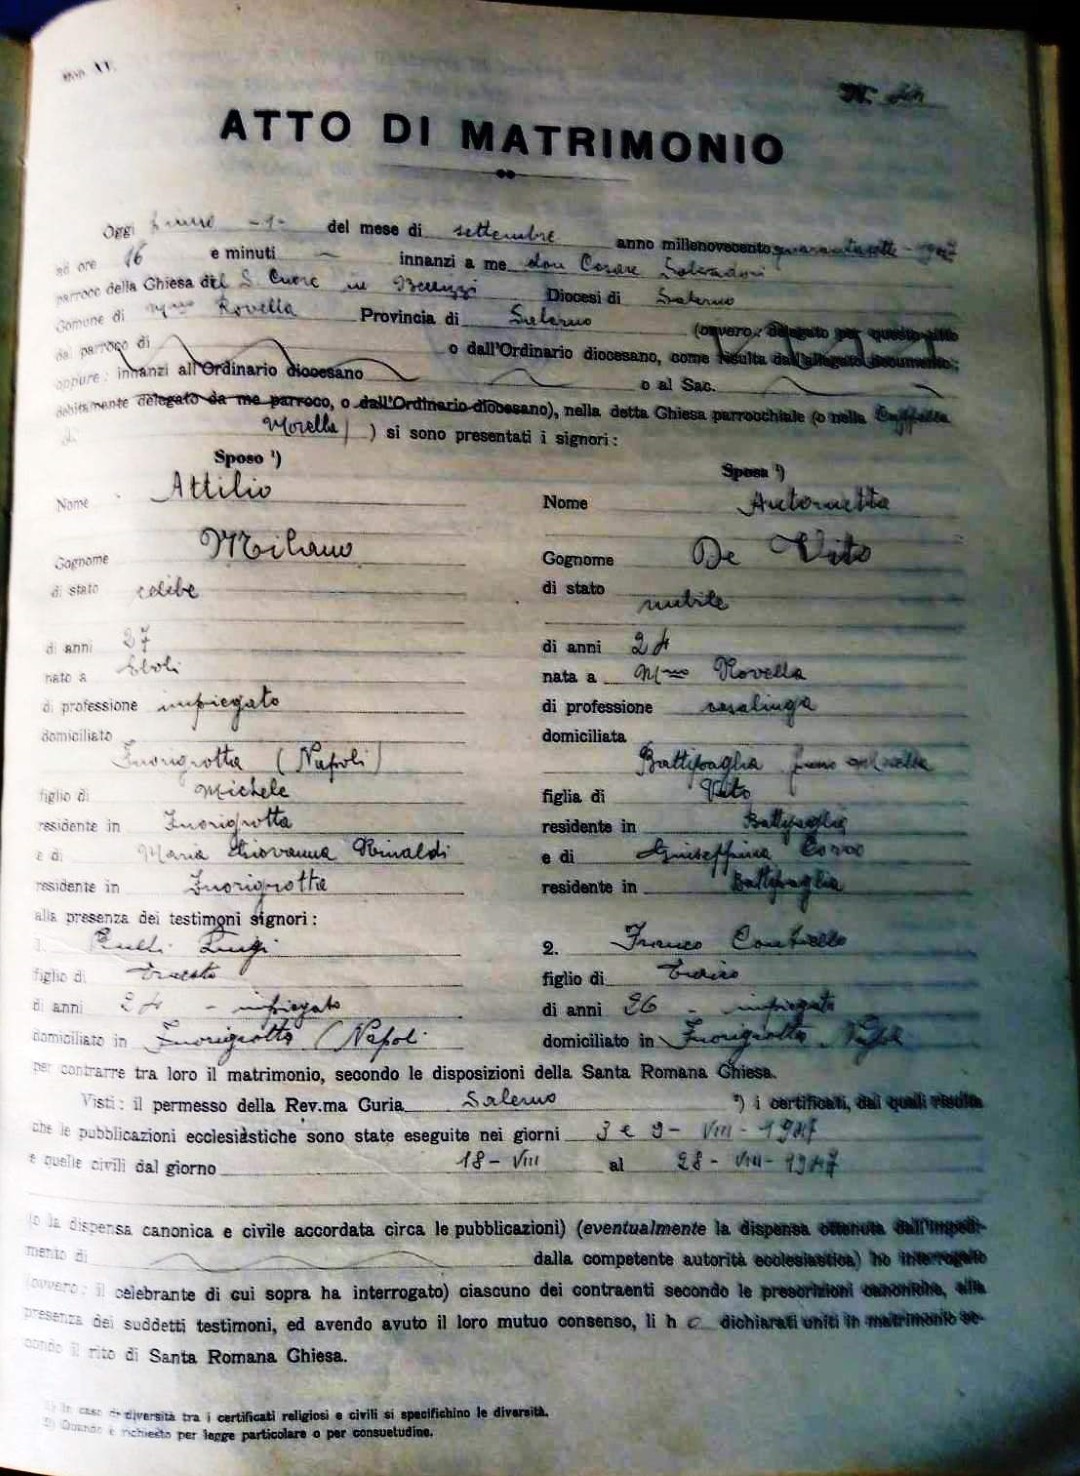 Mod. XV.
N.
ATTO DI MATRIMONIO
Oggi -1- del mese di settembre anno millenovecento quarantasette - 1947
ad ore 16 e minuti innanzi a me don Cesare
parroco della Chiesa del S. Cuore in Diocesi di Salerno
Comune di Rovella Provincia di Salerno (ovvero: delegato per questo atto
dal parroco di o dall'Ordinario diocesano, come risulta dall'allegato documento;
oppure: innanzi all'Ordinario diocesano o al Sac.
debitamente delegato da me parroco, o dall'Ordinario diocesano), nella detta Chiesa parrocchiale (o nella Cappella
di Morella) si sono presentati i signori:
Sposo ¹) Sposa ¹)
Nome Attilio Nome Antonietta
Cognome Milano Cognome De Vito
di stato celibe di stato nubile
di anni 27 di anni 24
nato a Eboli nata a Rovella
di professione impiegato di professione casalinga
domiciliato domiciliata
Fuorigrotta (Napoli) Battipaglia
figlio di Michele figlia di Vito
residente in Fuorigrotta residente in Battipaglia
e di Maria Giovanna Rinaldi e di Giuseppina
residente in Fuorigrotta residente in Battipaglia
alla presenza dei testimoni signori:
1. Luigi 2. Franco
figlio di Ernesto figlio di Enrico
di anni 24 - impiegato di anni 26 - impiegato
domiciliato in Fuorigrotta (Napoli domiciliato in Fuorigrotta Napoli
per contrarre tra loro il matrimonio, secondo le disposizioni della Santa Romana Chiesa.
Visti: il permesso della Rev.ma Curia Salerno ²) i certificati, dai quali risulta
che le pubblicazioni ecclesiastiche sono state eseguite nei giorni 3 e 9 - VIII - 1947
e quelle civili dal giorno 18 - VIII al 28 - VIII - 1947
(o la dispensa canonica e civile accordata circa le pubblicazioni) (eventualmente la dispensa ottenuta dall'impedi-
mento di dalla competente autorità ecclesiastica) ho interrogato
(ovvero: il celebrante di cui sopra ha interrogato) ciascuno dei contraenti secondo le prescrizioni canoniche, alla
presenza dei suddetti testimoni, ed avendo avuto il loro mutuo consenso, li h o dichiarati uniti in matrimonio se-
condo il rito di Santa Romana Chiesa.
1) In caso di diversità tra i certificati religiosi e civili si specifichino le diversità.
2) Quando è richiesto per legge particolare o per consuetudine.